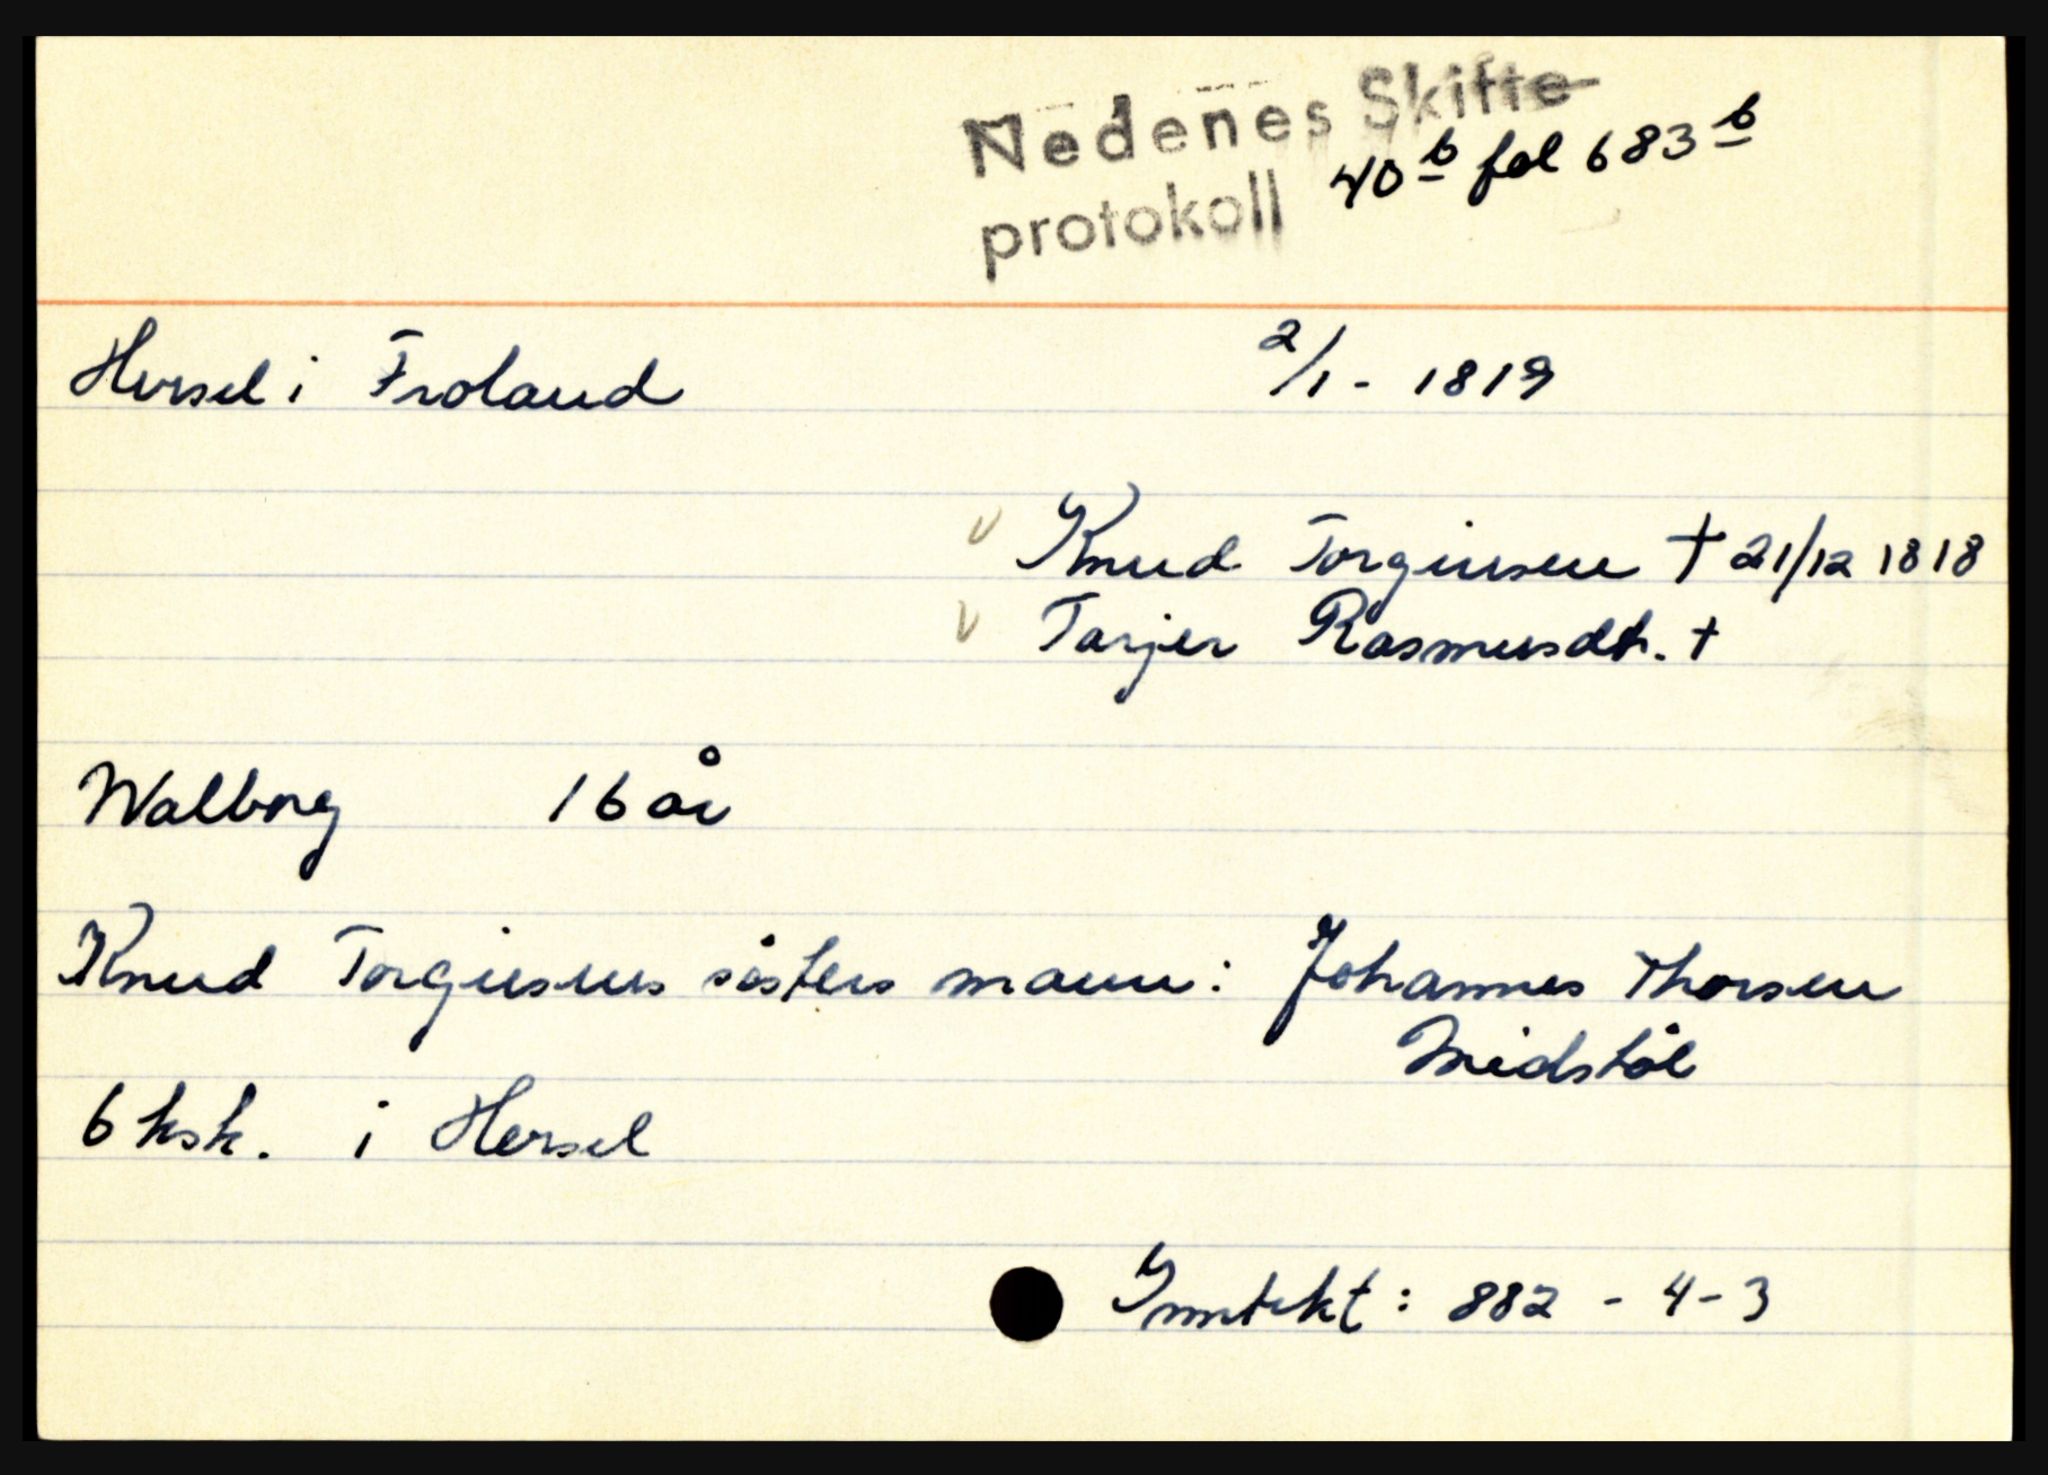 Nedenes Skifte-
protokoll 40 b fol 683 b
Hersel i Froland 2/1 - 1819
v Knud Torginsen † 21/12 1818
v Tarjer Rasmusdt. †
Walborg 16 år
Knud Torginsens søsters mann: Johannes Thorsen
Midstøl
6 ksk. i Hersel
Inntekt: 882 - 4 - 3